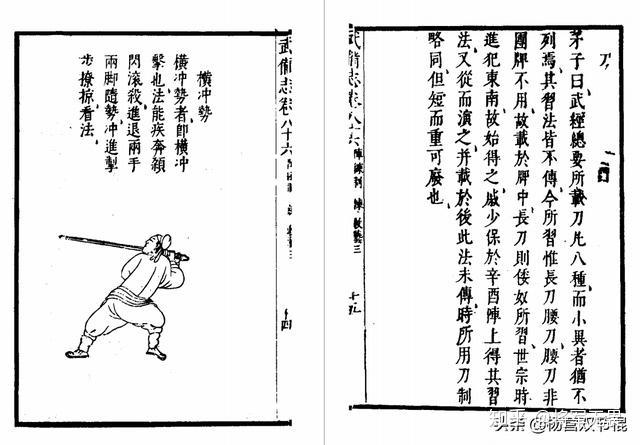 刀
茅子曰武經總要所載刀凡八種、而小異者猶不
列焉、其習法皆不傳、今所習惟長刀腰刀、腰刀非
團牌不用、故載於牌中、長刀則倭奴所習、世宗時
進犯東南、故始得之、戚少保於辛酉陣上得其習
法、又從而演之、并載於後、此法未傳時、所用刀制
略同、但短而重可廢也
武備志卷八十六 陣練制 練 教藝三 十五
武備志卷八十六 十四
橫冲勢
橫冲勢者即橫冲
擊也法能疾奔顚
閃滾殺進退兩手
兩脚隨勢冲進掣
步撩掠看法
知乎
头条